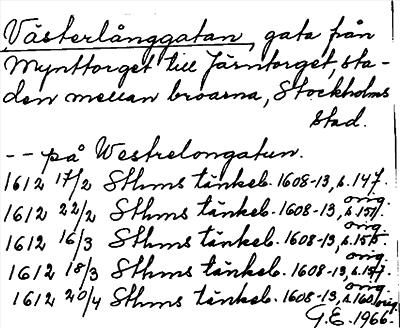 Västerlånggatan, gata från
Mynttorget till Järntorget, sta-
den mellan broarna, Stockholms
stad.
-- på Westrelongatun.
1612 17/2 Sthms tänkeb. 1608-13, s. 147.
orig.
1612 22/2 Sthms tänkeb. 1608-13, s. 151.
orig.
1612 16/3 Sthms tänkeb. 1608-13, s. 155.
orig.
1612 18/3 Sthms tänkeb. 1608-13, s. 157.
orig.
1612 20/4 Sthms tänkeb. 1608-13, s. 160 orig.
G.E. 1966.